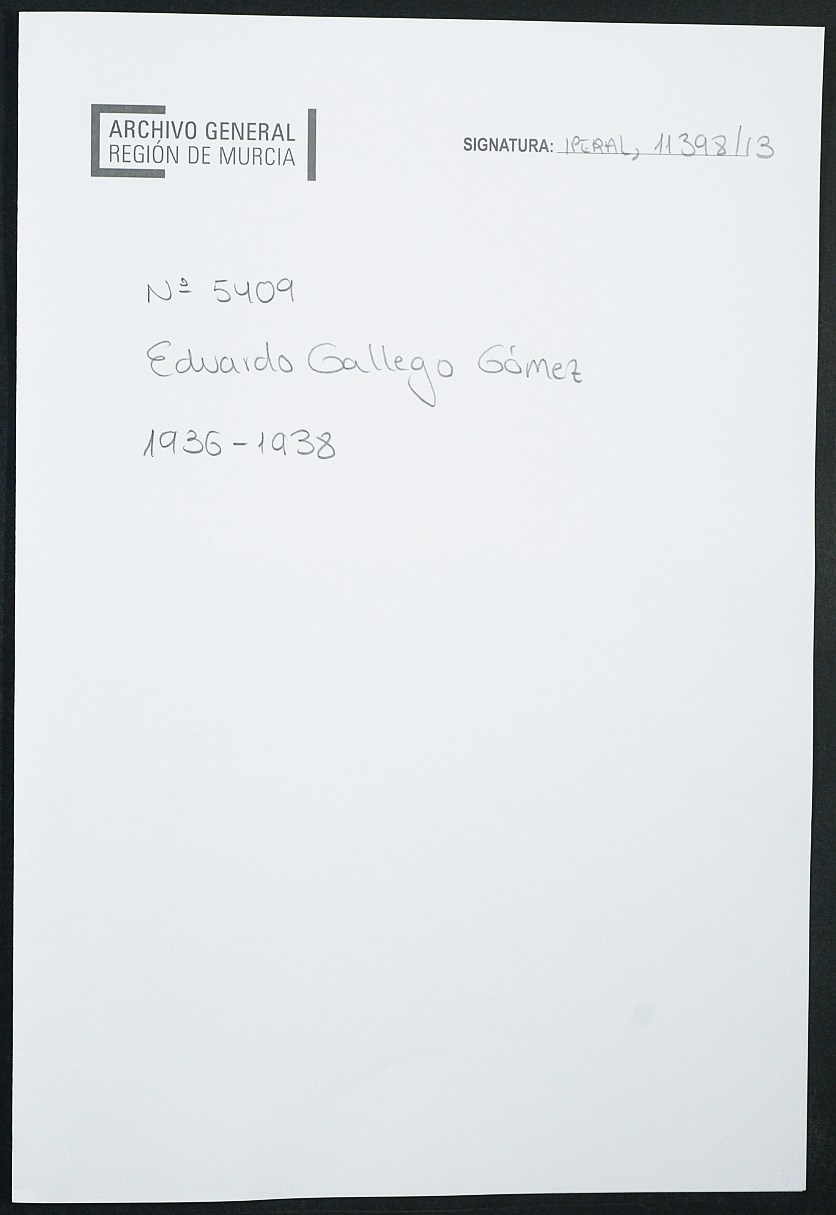 ARCHIVO GENERAL
REGIÓN DE MURCIA
SIGNATURA: IPERAL, 11398/13
Nº 5409
Eduardo Gallego Gómez
1936-1938